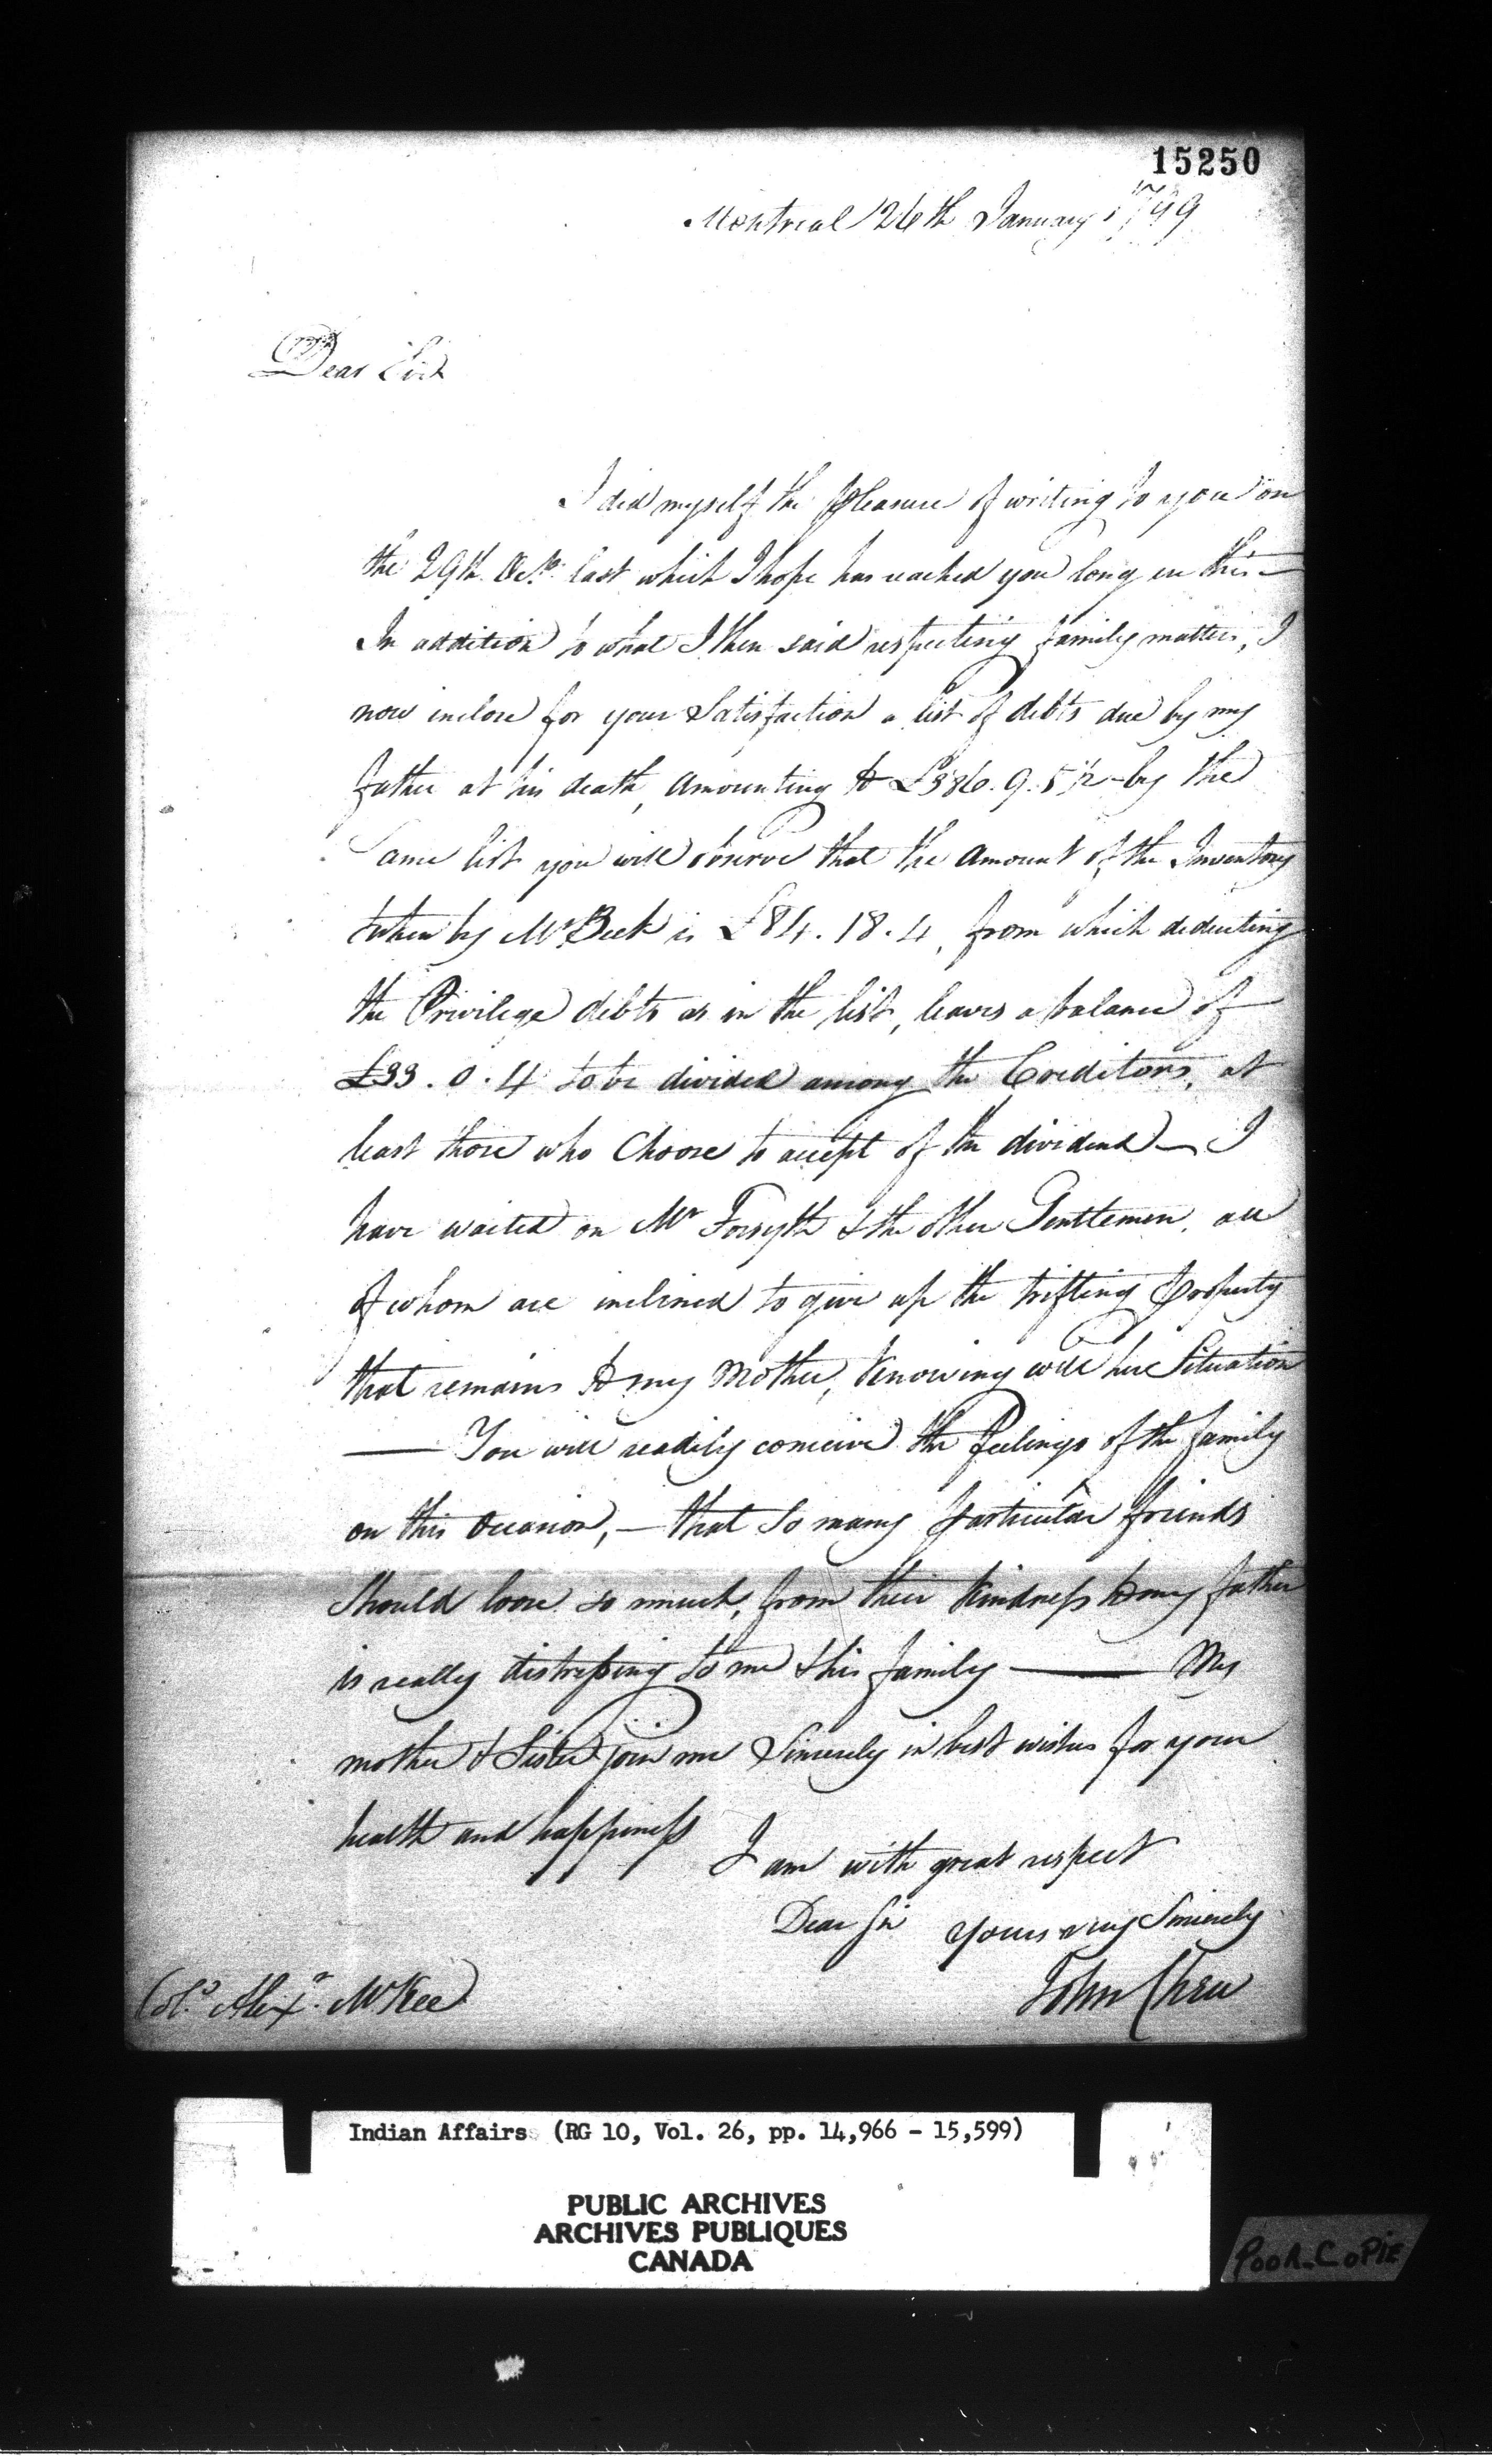 15250
Montreal 26th January 1799
Dear Sir
I did myself the pleasure of writing to you on
the 29th Octr. last which I hope has reached you long ere this —
In addition to what I then said respecting family matters, I
now inclose for your Satisfaction a list of debts due by my
father at his death, amounting to £386. 9. 5 1/2 - by the
Same list you will observe that the amount of the Inventory
taken by Mr Beek is £84. 18. 4, from which deducting
the Privilege debts as in the list, leaves a balance of
£33. 0. 4 to be divided among the Creditors, at
least those who Choose to accept of the dividend — I
have waited on Mr Forsyth & the other Gentlemen, all
of whom are inclined to give up the trifling property
that remains to my Mother, knowing well her Situation
— You will readily conceive the feelings of the family
on this Occasion, — that So many particular friends
Should loose so much, from their kindness to my father
is really distressing to me & his family — My
mother & Sister join me Sincerely in best wishes for your
health and happiness
I am with great respect
Dear Sir yours very Sincerely
John Chew
Colo. Alexr. McKee
Indian Affairs (RG 10, Vol. 26, pp. 14,966 - 15,599)
PUBLIC ARCHIVES
ARCHIVES PUBLIQUES
CANADA
POOR_COPIE